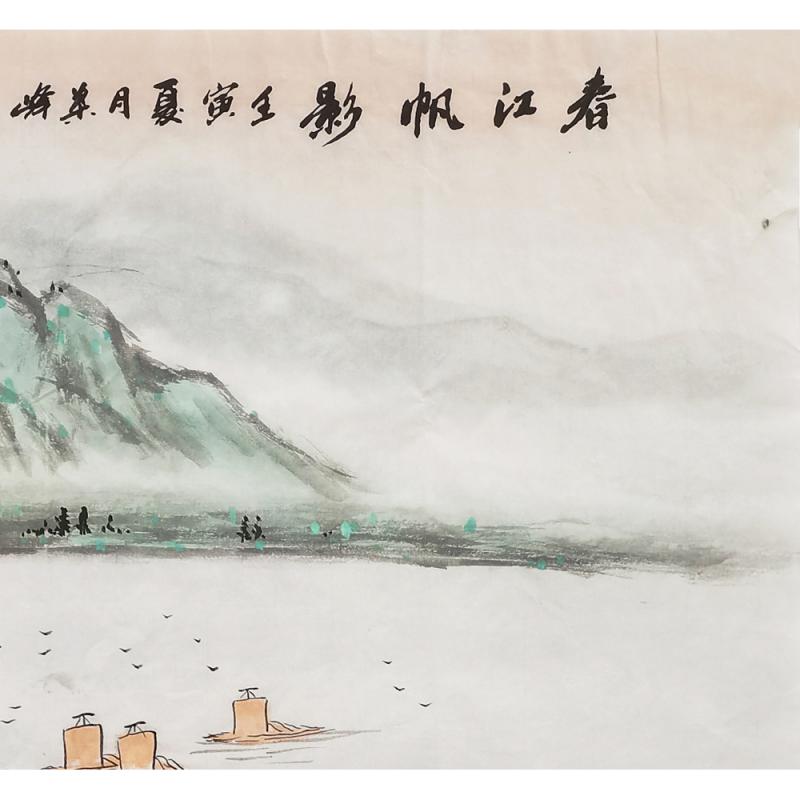 春江帆影 壬寅夏月 峰